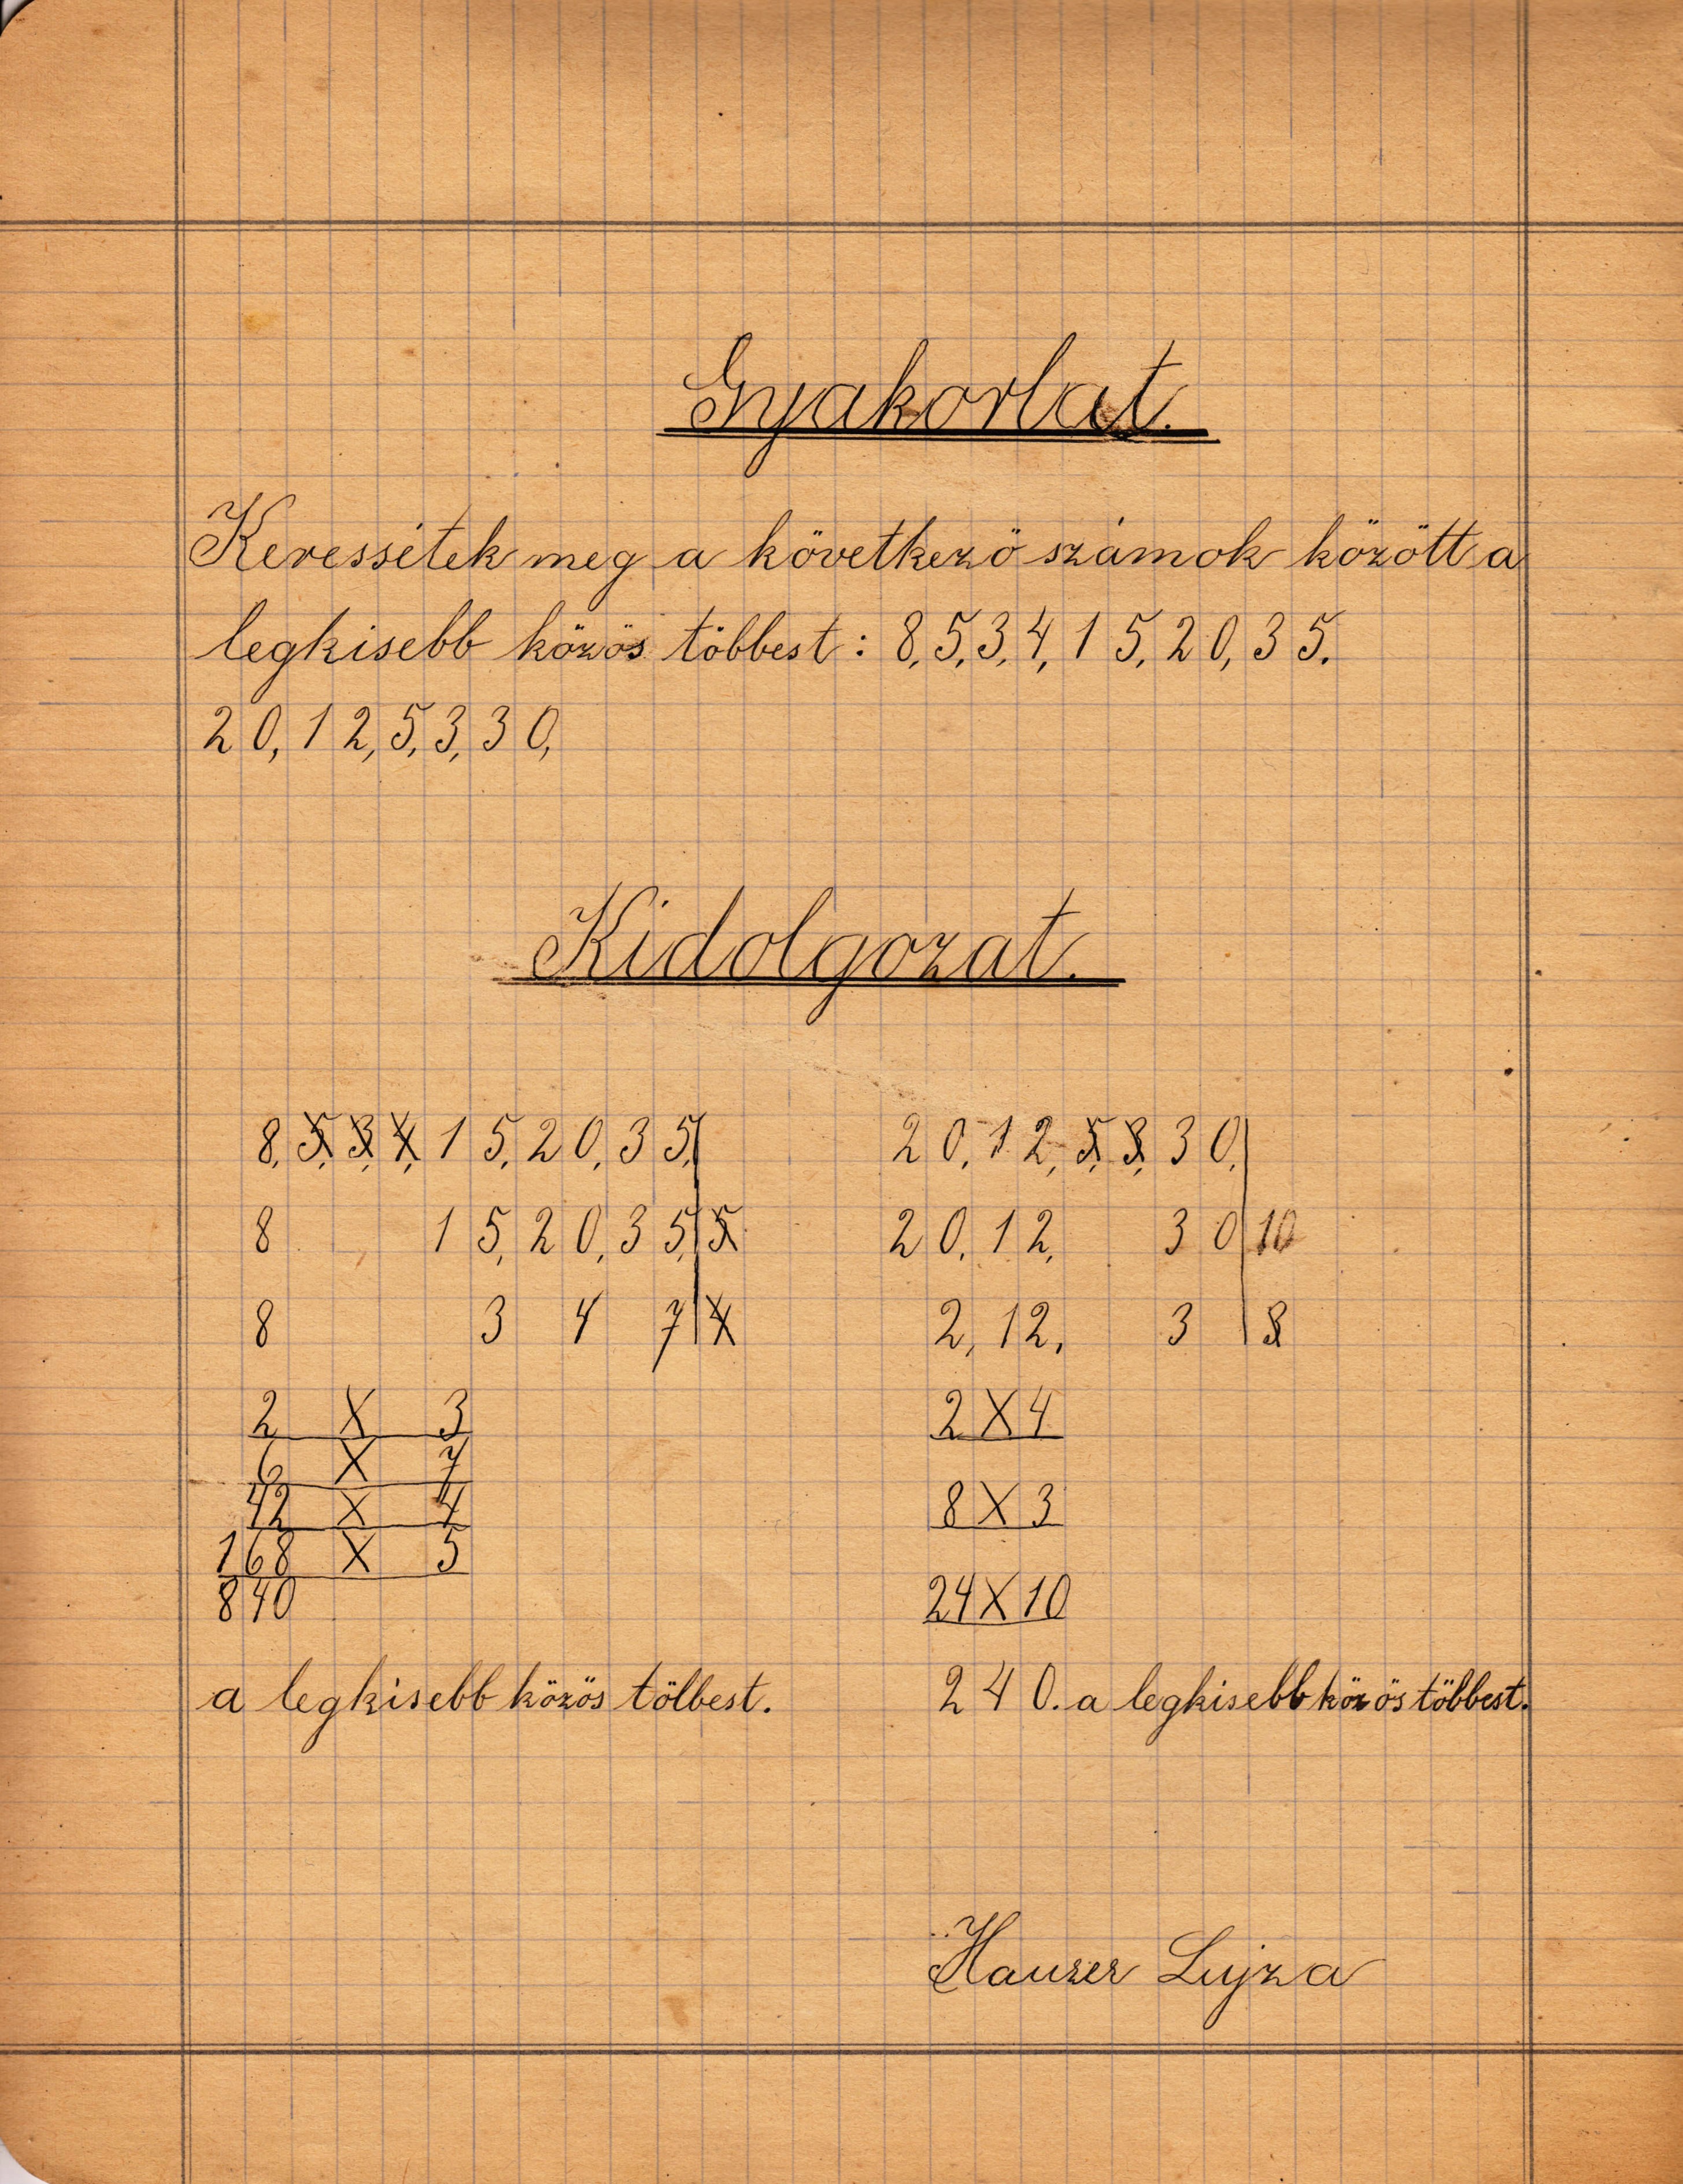 Gyakorlat.
Keressétek meg a következő számok között a
legkisebb közös többest: 8, 5, 3, 4, 15, 20, 35.
20, 12, 5, 3, 30,
Kidolgozat.
8, 5, 3, 4, 15, 20, 35,|
8 15, 20, 35,| 5
8 3 4 7| 4
2 X 3
6 X 7
42 X 4
168 X 5
840
a legkisebb közös tölbest.
20, 12, 5, 3, 30,|
20, 12, 30| 10
2, 12, 3 |
2 X 4
8 X 3
24 X 10
240. a legkisebb közös többest.
Hauzer Lujza